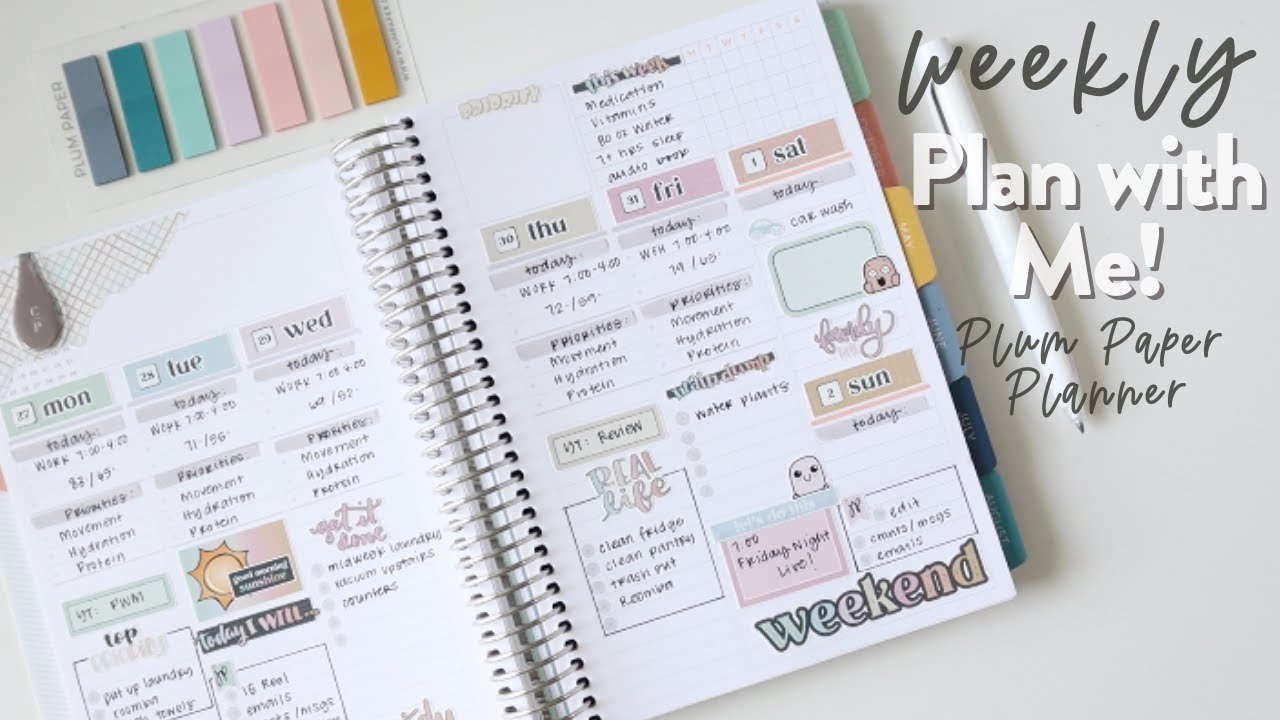 weekly
Plan with
Me!
Plum Paper
Planner
PLUM PAPER
PRIORITY
this week
M T W T F S S
Medication
Vitamins
80 oz Water
7+ hrs sleep
audio book
27 mon
today:
WORK 7:00-4:00
Priorities:
Movement
Hydration
Protein
top
put up laundry
roomba
28 tue
today:
WORK 7:00-4:00
Priorities:
Movement
Hydration
Protein
good morning
sunshine
Today I WILL...
IG Reel
emails
29 wed
today:
WORK 7:00-4:00
69/52
Priorities:
Movement
Hydration
Protein
get it
done
midweek laundry
vacuum upstairs
counters
30 thu
today:
WORK 7:00-4:00
72/59
Priorities:
Movement
Hydration
Protein
REVIEW
REAL
life
clean fridge
clean pantry
trash out
Roomba
31 fri
today:
WFH 7:00-4:00
Priorities:
Movement
Hydration
Protein
brain dump
water plants
let's do this
7:00
Friday Night
Live!
1 sat
today:
car wash
family
2 sun
today:
edit
cmnts/msgs
emails
weekend
MAY
JUNE
JULY
AUGUST